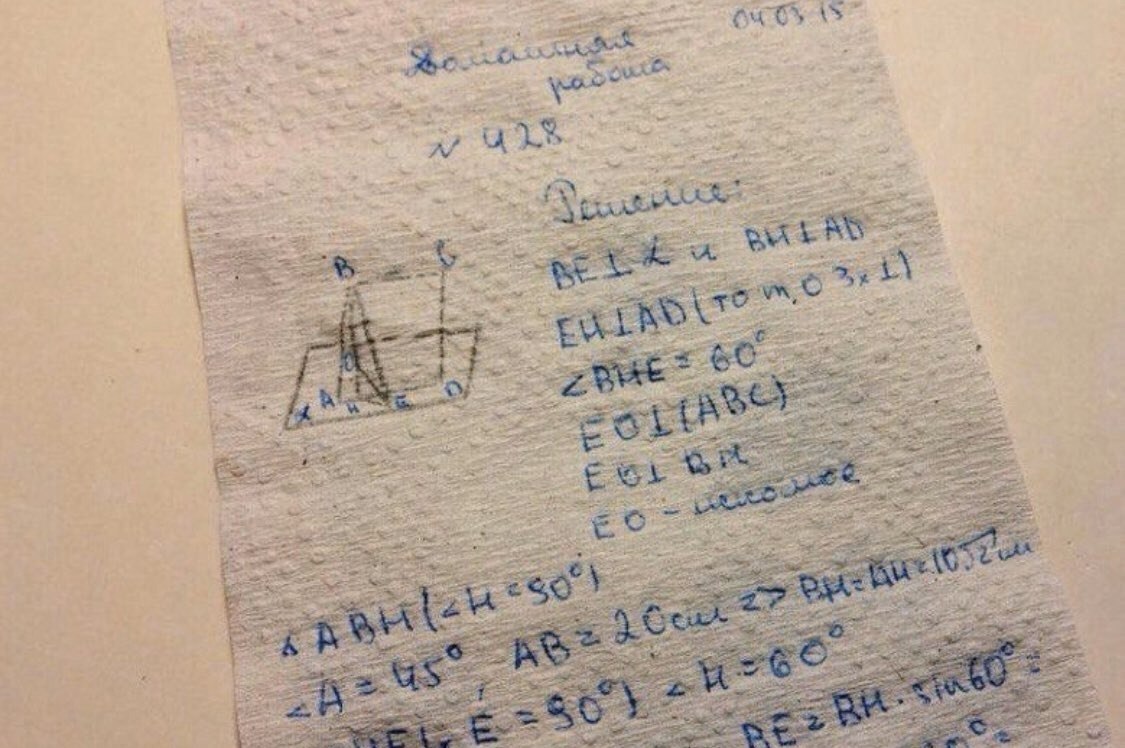 04 03 15
Домашняя
работа
№ 428
Решение:
B C
A H E D
α O
BE⊥α и BH⊥AD
EH⊥AD (то т. о 3х⊥)
∠BHE = 60°
EO⊥(ABC)
EO⊥BH
EO - искомое
△ABH (∠H = 90°)
∠A = 45°, AB = 20см => BH=AH=10√2см
E = 90°) ∠H = 60°
BE = BH · sin60° =